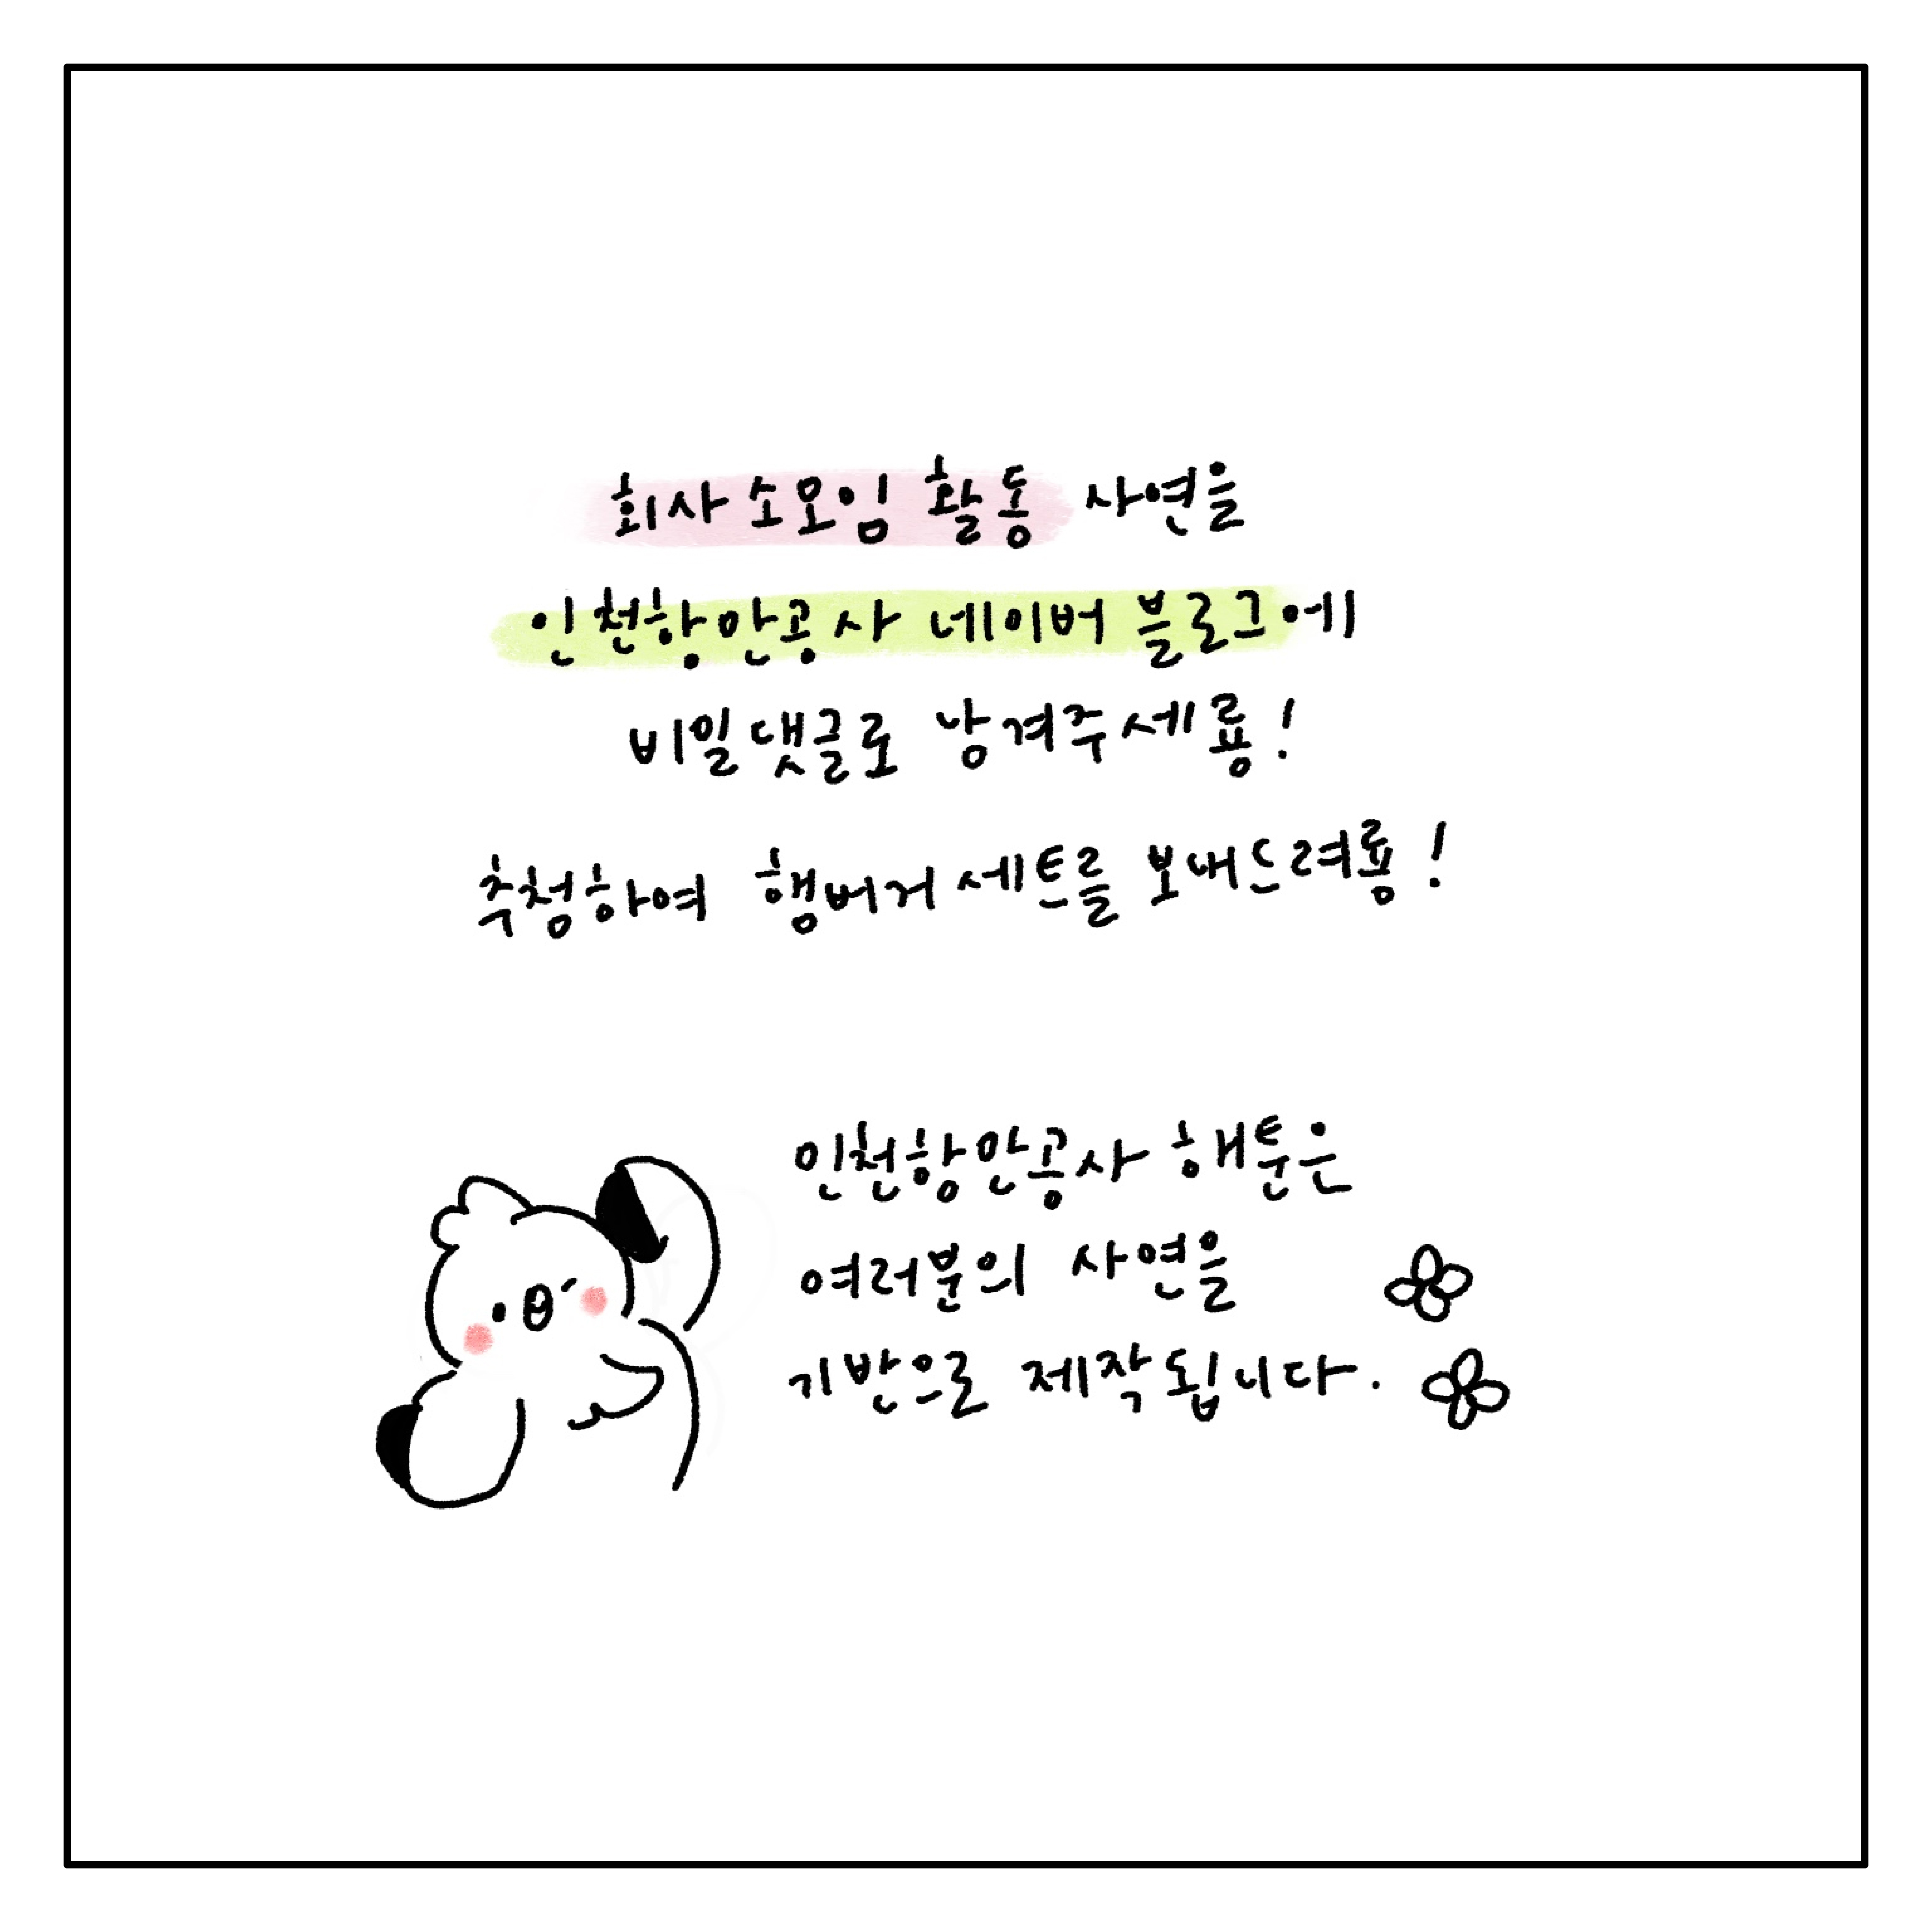 회사 소모임 활동 사연을
인천항만공사 네이버 블로그에
비밀댓글로 남겨주세룡!
추첨하여 햄버거 세트를 보내드려룡!
인천항만공사 해툰은
여러분의 사연을
기반으로 제작됩니다.